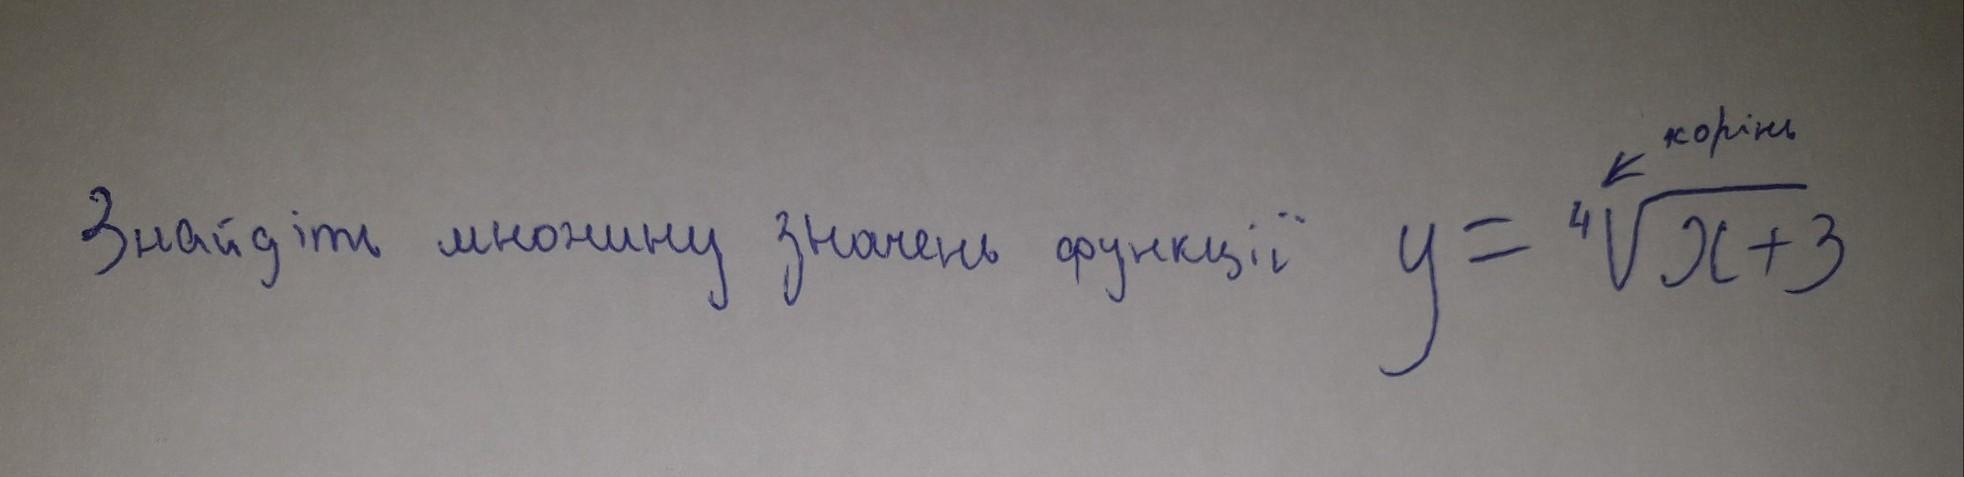 корінь
Знайдіть множину значень функції y = ⁴√x+3